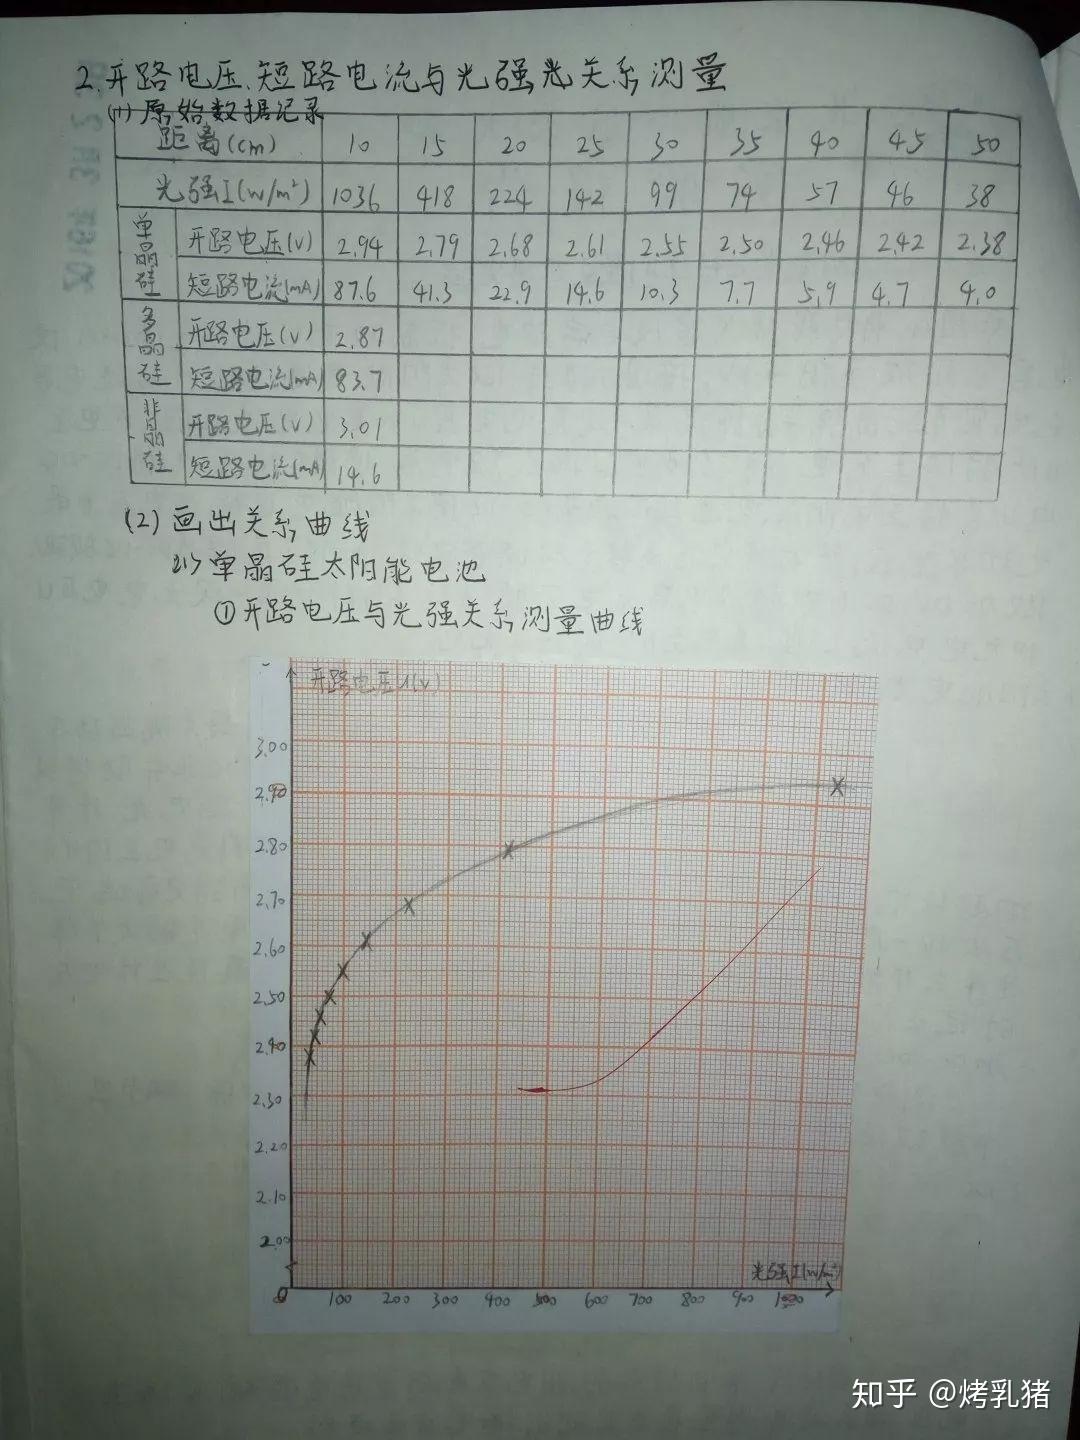 2.开路电压、短路电流与光强关系测量
(1)原始数据记录
距离(cm) 10 15 20 25 30 35 40 45 50
光强I(w/m²) 1036 418 224 142 99 74 57 46 38
单晶硅 开路电压(V) 2.94 2.79 2.68 2.61 2.55 2.50 2.46 2.42 2.38
短路电流(mA) 87.6 41.3 22.9 14.6 10.3 7.7 5.9 4.7 4.0
多晶硅 开路电压(V) 2.87
短路电流(mA) 83.7
非晶硅 开路电压(V) 3.01
短路电流(mA) 14.6
(2)画出关系曲线
单晶硅太阳能电池
①开路电压与光强关系测量曲线
开路电压U(V)
3.00
2.90
2.80
2.70
2.60
2.50
2.40
2.30
2.20
2.10
2.00
光强I(w/m²)
0 100 200 300 400 500 600 700 800 900 1000
知乎 @烤乳猪